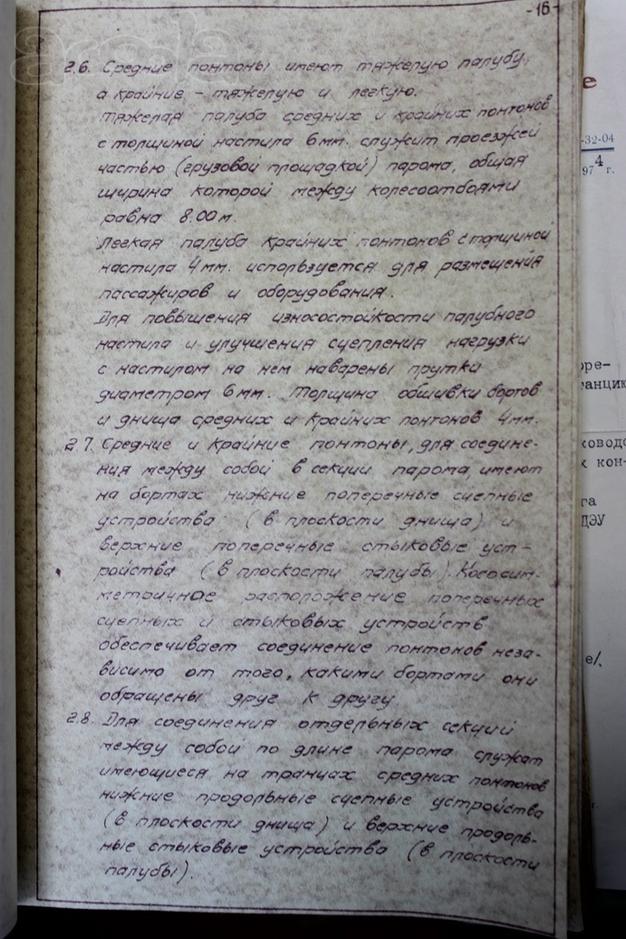 -16-
2.6. Средние понтоны имеют тяжелую палубу,
а крайние – тяжелую и легкую.
Тяжелая палуба средних и крайних понтонов
с толщиной настила 6мм. служит проезжей
частью (грузовой площадкой) парома, общая
ширина которой между колесоотбоями
равна 8.00 м.
Легкая палуба крайних понтонов с толщиной
настила 4мм. используется для размещения
пассажиров и оборудования.
Для повышения износостойкости палубного
настила и улучшения сцепления нагрузки
с настилом на нем наварены прутки
диаметром 6мм. Толщина обшивки бортов
и днища средних и крайних понтонов 4мм.
2.7. Средние и крайние понтоны, для соедине-
ния между собой в секции парома, имеют
на бортах нижние поперечные сцепные
устройства (в плоскости днища) и
верхние поперечные стыковые уст-
ройства (в плоскости палубы). Кососим-
метричное расположение поперечных
сцепных и стыковых устройств
обеспечивает соединение понтонов неза-
висимо от того, какими бортами они
обращены друг к другу.
2.8. Для соединения отдельных секций
между собой по длине парома служат
имеющиеся на транцах средних понтонов
нижние продольные сцепные устройства
(в плоскости днища) и верхние продоль-
ные стыковые устройства (в плоскости
палубы).
е
-32-04
974 г.
оре-
танцик
ководс
х кон-
га
ДЭУ
е/.